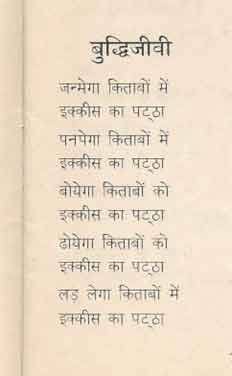 बुद्धिजीवी
जनमेगा किताबों में
इक्कीस का पट्ठा
पनपेगा किताबों में
इक्कीस का पट्ठा
बोयेगा किताबों को
इक्कीस का पट्ठा
ढोयेगा किताबों को
इक्कीस का पट्ठा
लड़ लेगा किताबों में
इक्कीस का पट्ठा